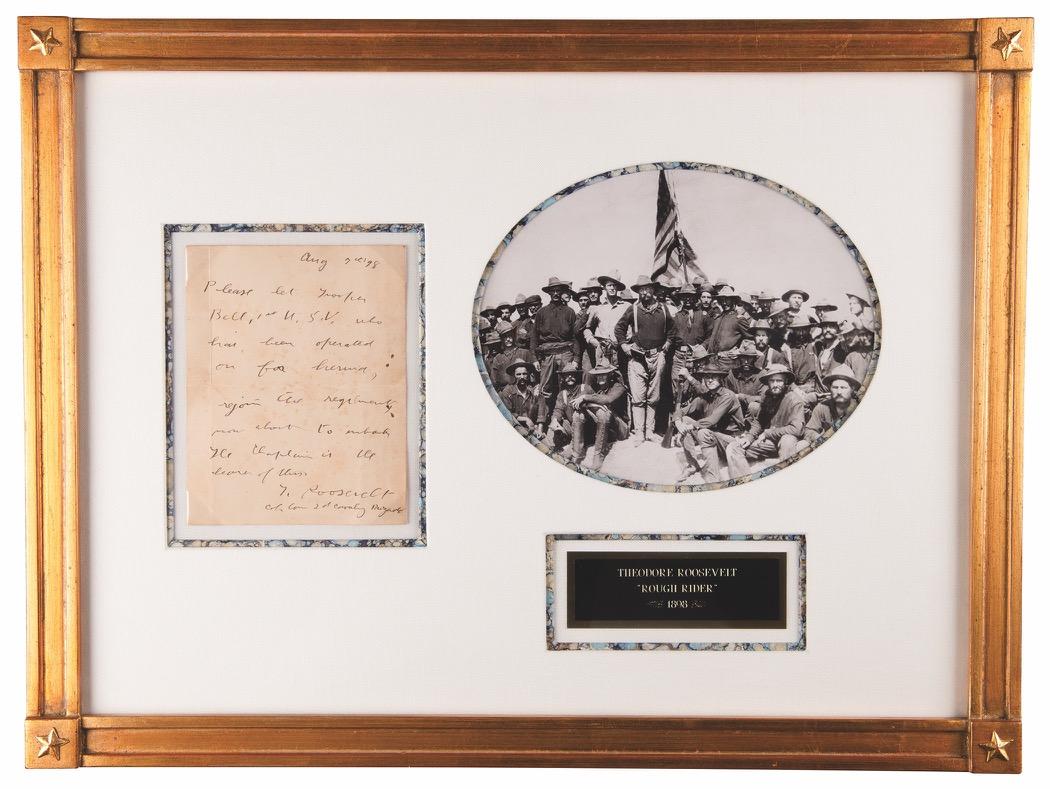 Aug 7th 98
Please let Trooper
Bell, 1st U.S.V. who
has been operated
on for hernia,
rejoin the regiment,
now about to embark
The Chaplain is the
bearer of this
T. Roosevelt
Col. Com 2d Cavalry Brigade
THEODORE ROOSEVELT
"ROUGH RIDER"
1898